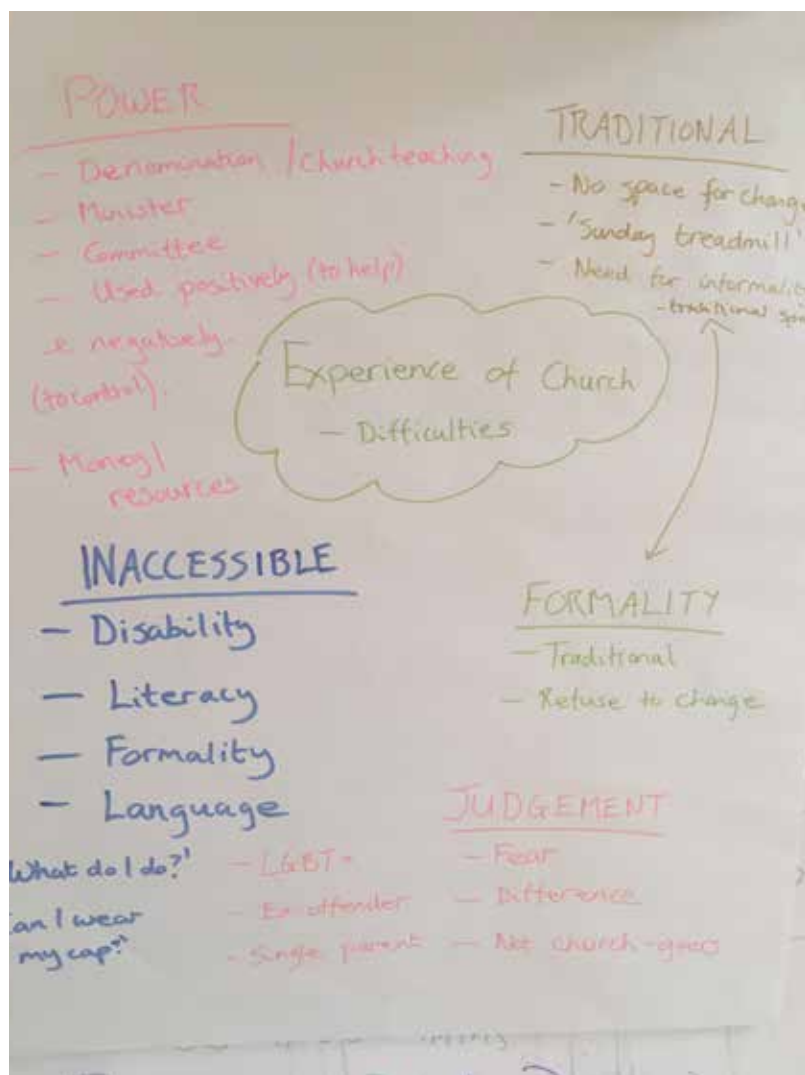 POWER
- Denomination / Church teaching
- Minister
- Committee
- Used positively (to help)
- e negatively
(to control).
- Money /
resources
TRADITIONAL
- No space for change
- 'Sunday treadmill'
- Need for informalit
- traditional
Experience of Church
- Difficulties
INACCESSIBLE
- Disability
- Literacy
- Formality
- Language
What do I do?'
an I wear
my cap?'
FORMALITY
- Traditional
- Refuse to change
JUDGEMENT
- LGBT+
- Ex offender
- Single parent
- Fear
- Difference
- Not church-goers